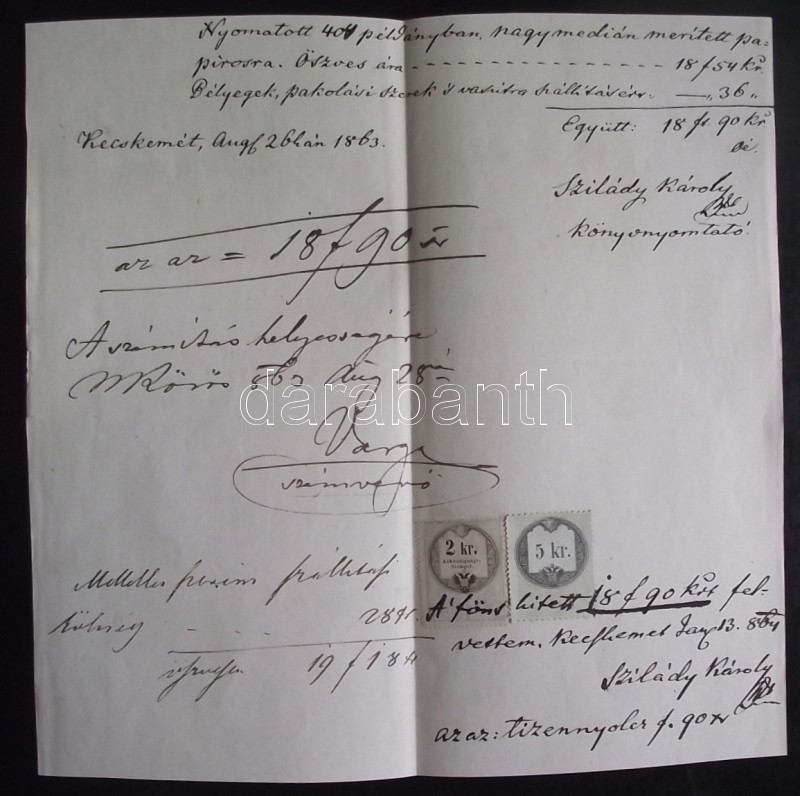 Nyomatott 404 példányban, nagymedián merített pa-
pirosra. Öszves ára - - - - - - - - - - - - - - - - 18 f 54 kr.
Bélyegek, pakolási szerek 's vasútra szállításért: —„ 36 „
Együtt: 18 ft. 90 kr
Kecskemét, Aug. 26kán 1863.
Szilády Károly
könyvnyomtató.
az az = 18 f 90 xr
A számitás helyességére
NKőrös 863 Aug 28án
Varga
számvevő
darabanth
2 kr.
5 kr.
szállitási
költség - - - 28 xr.
19 f 18 xr
A' fönt kitett 18 f 90 krt fel-
vettem, Kecskemet Jan 13. 864
Szilády Károly
az az: tizennyolcz f. 90 xr